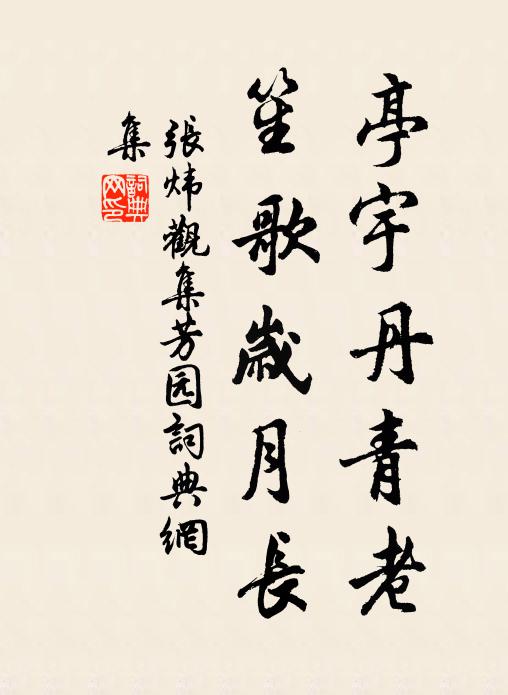 亭宇丹青老
笙歌歲月長
張炜觀集芳园詞典網
集
詞典
网印